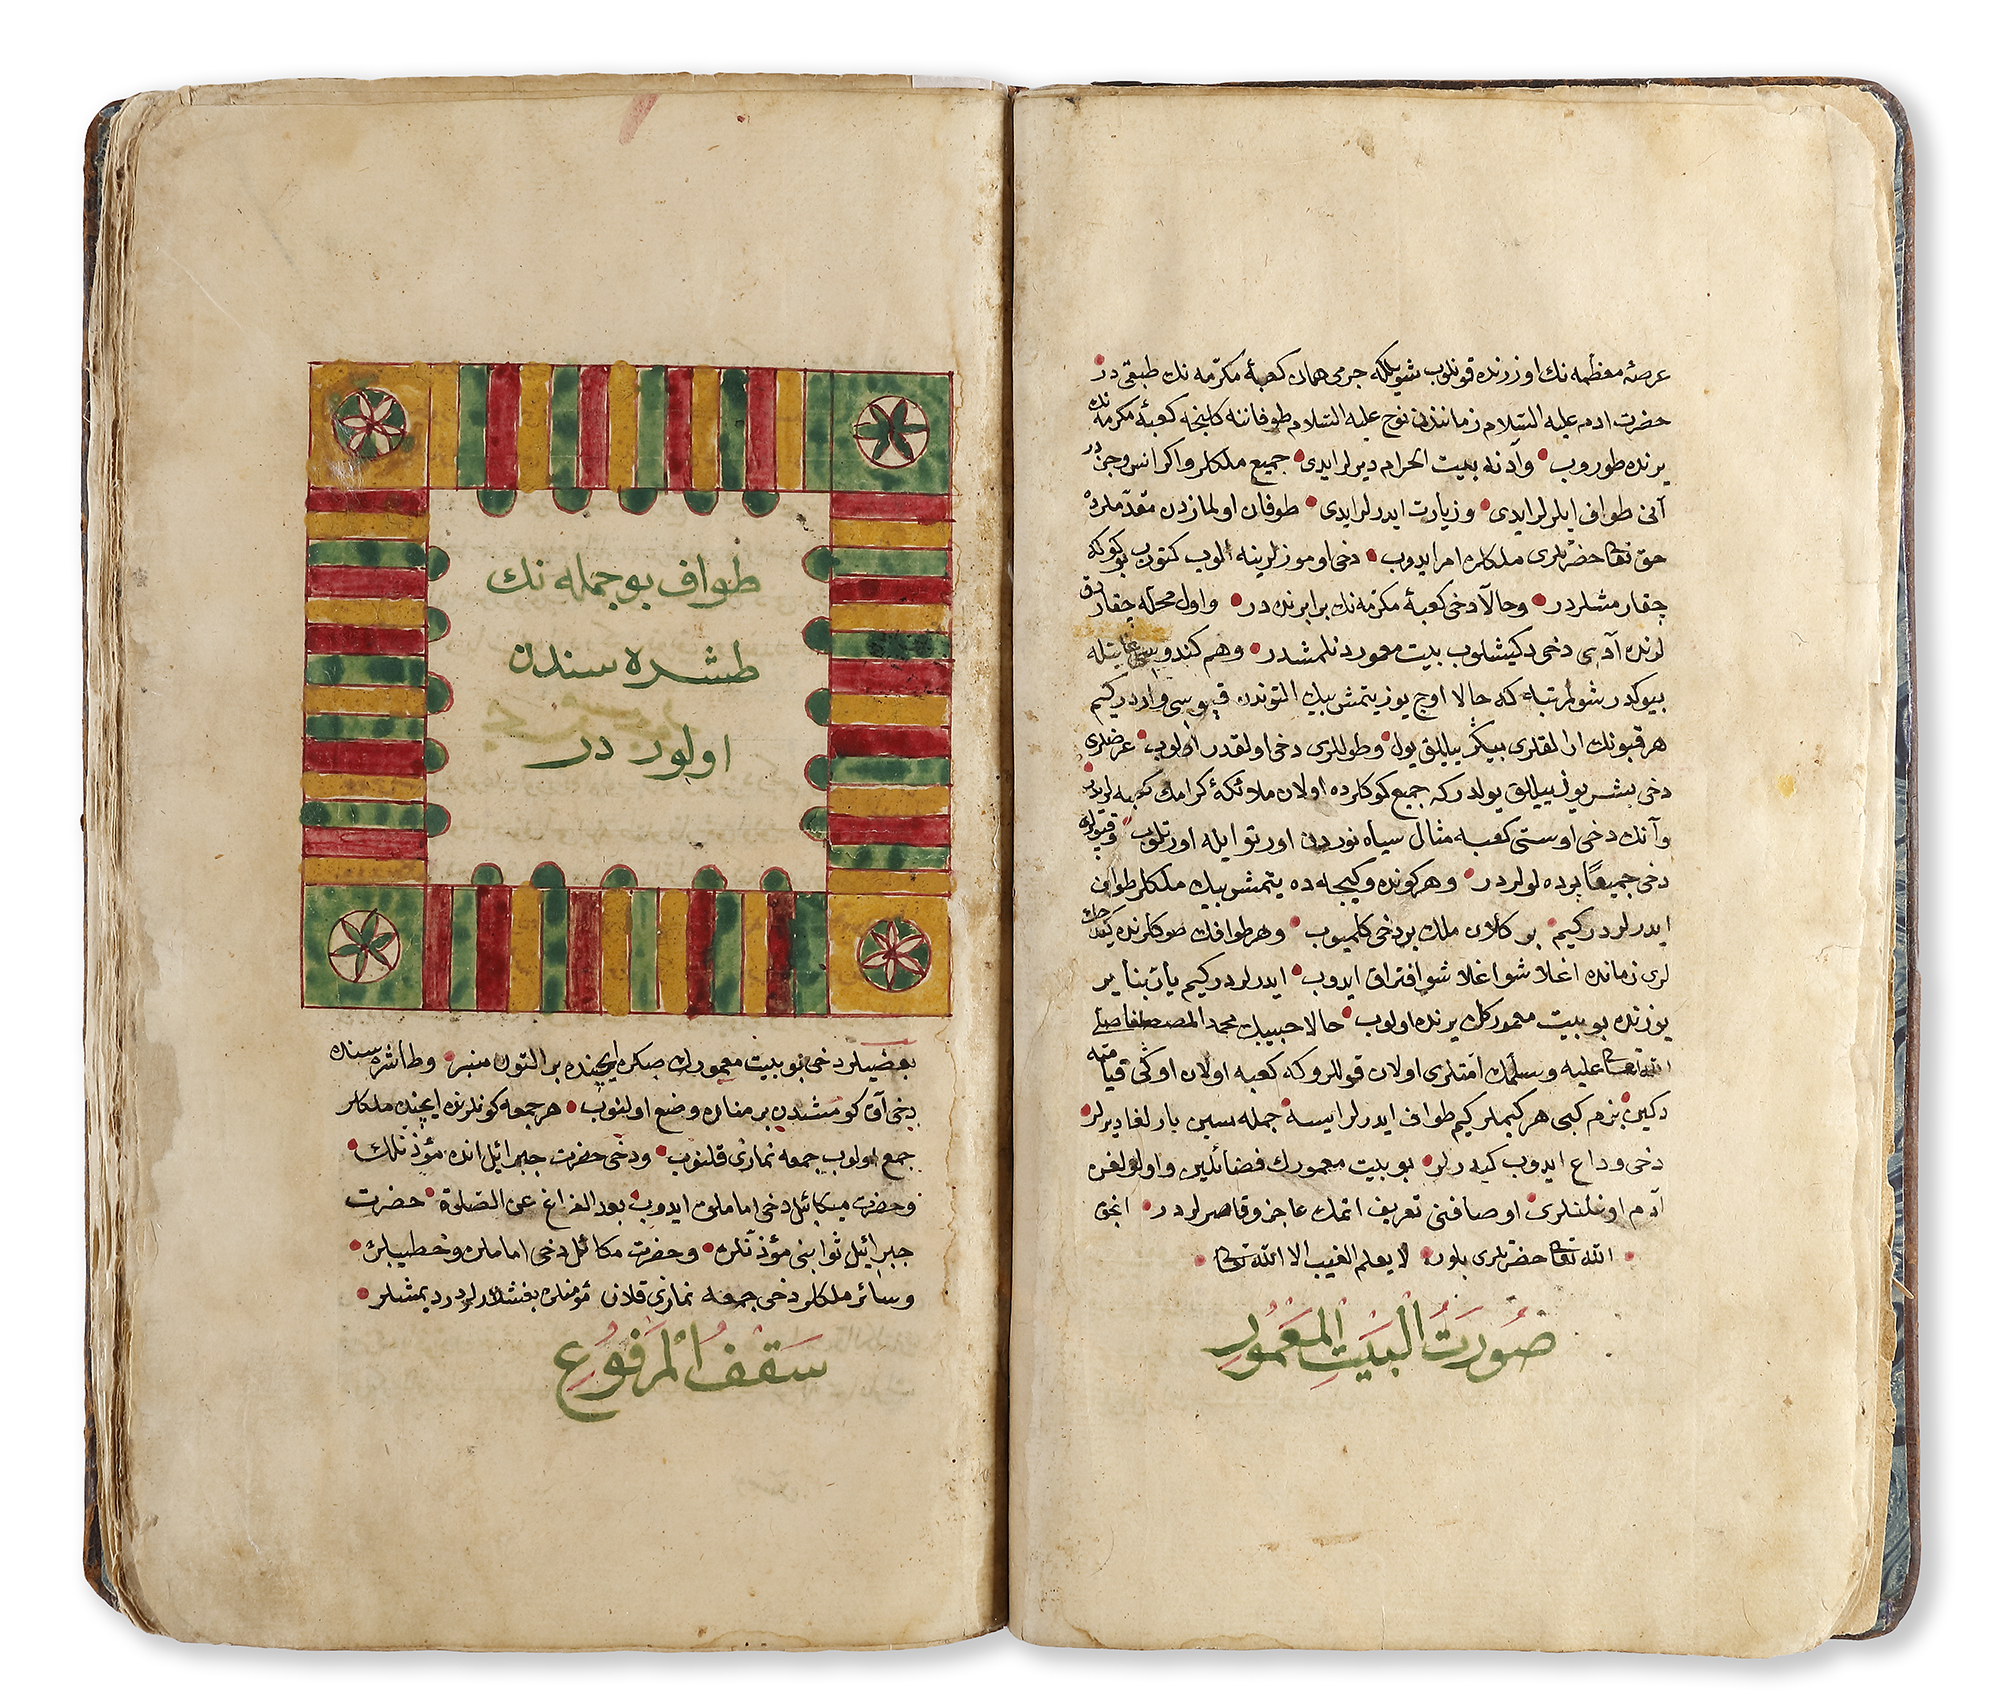 عرصۀ معظمه نك اوزرنده قونلوب شويلكه جرمى همان كعبۀ مكرّمه نك طبقى در
حضرت ادم عليه السّلام زماننندن نوح عليه السّلام طوفاننه كلنجه كعبۀ مكرمه نك
يرنده طوروب وآدنه بيت الحرام ديرلر ايدى جميع ملكلر واكر انس وجن در
آنى طواف ايلرلر ايدى وزيارت ايدرلر ايدى طوفان اولمازدن مقدّملره
حق تعالى حضرتلرى ملكلره امر ايدوب دخى اوموزلرينه الوب كتوروب كوكه
چقارمشلردر وحالا دخى كعبۀ مكرّمه نك برابرنده در واول محله چقاردق
لرنده آدى دخى دكيشلوب بيت معمور دنلمشدر وهم كندوسى غايتله
بيوكدر شول مرتبه كه حالا اوچ يوز يتمش بيك التوندن قپوسى واردر كيم
هر قپونك ارالقلرى بيكر ييللق يول وطوللرى دخى اولقدر اولوب عرضلرى
دخى بشر يوز ييللق يولدر كه جميع كوكلرده اولان ملائكۀ كرامك كعبه لريدر
وآنك دخى اوستى كعبه مثال سياه نوردن اورتو ايله اورتلوب وقپولرى
دخى جميعًا پرده لولردر وهر كونده وكيجه ده يتمش بيك ملكلر طواف
ايدرلر در كيم بر كلان ملك بر دخى كلميوب وهر طوافك صوكلرنده كيده جك
لرى زمانده اغلاشو اغلاشو افتراق ايدوب ايدرلر در كيم يا ربّنا ير
يوزنده بو بيت معمورك يرنده اولوب حالا حبيبك محمد المصطفا صلى
الله تعالى عليه وسلمك امّتلرى اولان قوللروكه كعبه اولان اوكى قيامته
دكين بزم كبى هر كيملر كيم طواف ايدرلر ايسه جمله سين يارلغا ديرلر
دخى وداع ايدوب كيدرلر بو بيت معمورك فضائلين واولولغن
آدم اوغلنلرى اوصافنى تعريف اتمك عاجز وقاصرلردر انجق
الله تعالى حضرتلرى بلور لا يعلم الغيب الا الله تعالى
صُورَتُ الْبَيْتِ الْمَعْمُورِ
طواف بو جمله نك
طشره سندن
اولور در
بعضيلر دخى بو بيت معمورك صكره ايچنده بر التون منبر وطاشره سنده
دخى آق كومشدن بر مناره وضع اولنوب هر جمعه كونلرنده ايچنده ملكلر
جمع اولوب جمعه نمازى قلنوب ودخى حضرت جبرائيل انده مؤذنلك
وحضرت ميكائيل دخى اماملق ايدوب بعد الفراغ عن الصّلوة حضرت
جبرائيل ثوابنى مؤذنلره وحضرت مكائل دخى اماملره وخطيبلره
وسائر ملكلر دخى جمعه نمازى قلان مؤمنلره بغشلارلردر ديمشلر
سَقْفُ الْمَرْفُوعِ